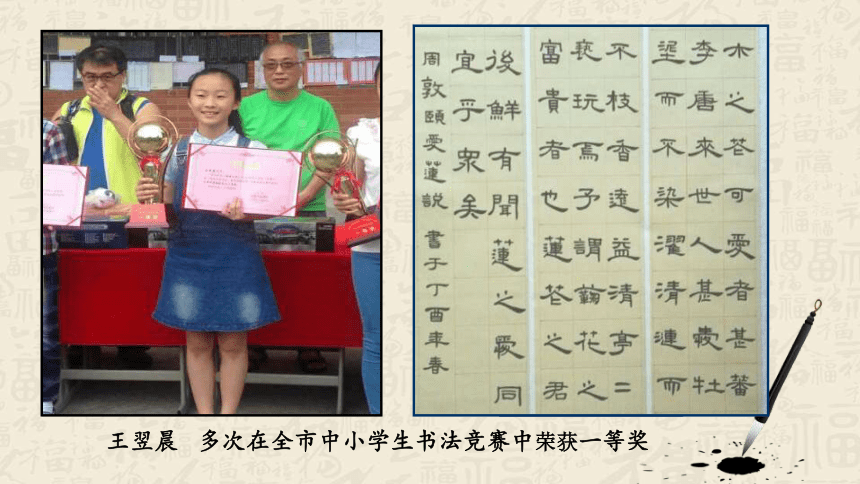 木之花可愛者甚蕃
李唐來世人甚愛牡
埿而不染濯清漣而
不枝香遠益清亭二
褻玩焉予謂蘜花之
富貴者也蓮花之君
後鮮有聞蓮之愛同
宜乎眾矣
周敦頤愛蓮說 書于丁酉年春
王翌晨 多次在全市中小学生书法竞赛中荣获一等奖